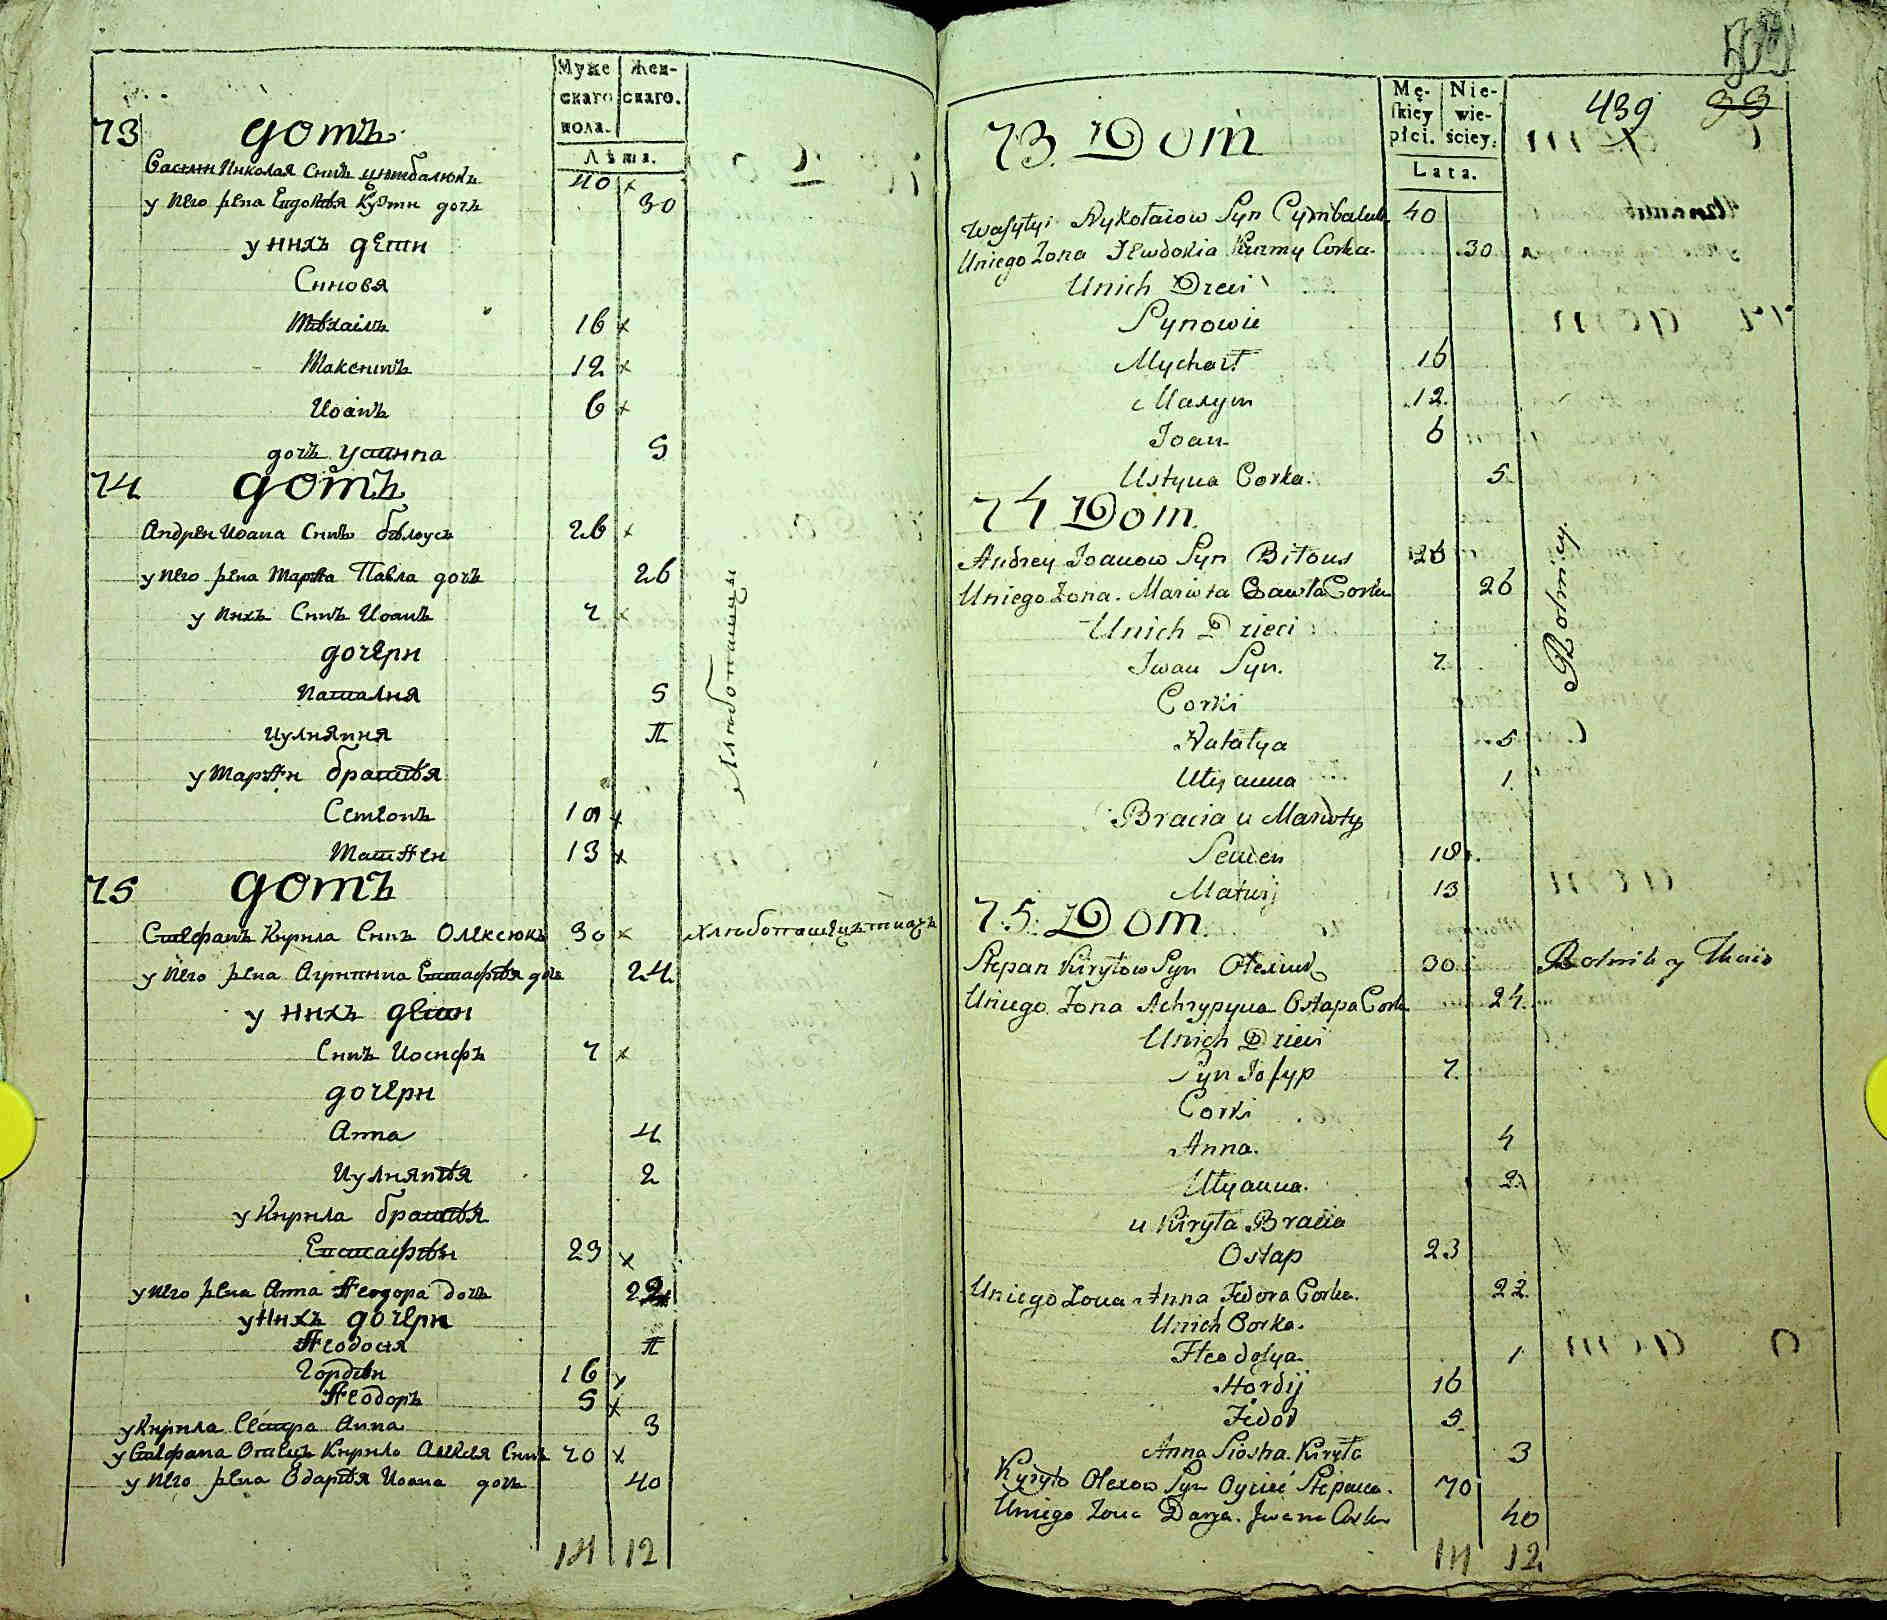 Муже Жен-
скаго скаго.
пола.
Лѣта.
73 домъ
Василий Николая Синъ Цимбалюкъ 40 х
у него жена Евдокія Кузми дочъ 30
у нихъ дети
Синовя
Михаілъ 16 х
Максимъ 12 х
Иоанъ 6 х
дочъ Устина 5
74 домъ
Андреи Иоана Синъ Бѣлоусъ 26 х
у него жена Марѳа Павла дочъ 26
у нихъ Синъ Иоанъ 7 х
дочери
Наталия 5
Иулияния 1
у Марѳи братія
Семеонъ 18 х
Матѳеи 13 х
Хлиботашцы
75 домъ
Стефанъ Кирила Синъ Олексюкъ 30 х
у него жена Агрипина Евстафія дочъ 24
у нихъ дети
Синъ Иосифъ 7 х
дочери
Анна 4
Иулиянія 2
у Кирила братія
Евстафіи 23 х
у него жена Анна Ѳеодора дочъ 22
у нихъ дочери
Ѳеодосія 1
Гордѣи 16 х
Ѳеодоръ 5 х
у Кирила Сестра Анна 3
у Стефана Отецъ Кирило Алексія Синъ 70 х
у него жена Одарія Иоана дочъ 40
14 12
439 33
Mę- Nie-
skiey wie-
płci. ściey.
Lata.
73. Dom
Wasyłyi Nykołaiow Syn Cymbaluk 40
Uniego Zona Jewdokia Kuzmy Corka. 30
Unich Dzieci
Synowie
Mychał 16
Maxym 12.
Joan 6
Ustyna Corka. 5
74 Dom
Andrey Joanow Syn Biłous 26
Uniego Zona. Marwta Pawła Corka 26
Unich Dzieci
Iwan Syn. 7
Corki
Natałya 5
Ulyanna 1.
Bracia u Marwty
Semen 18.
Matwij 13
Rolnicy.
75. Dom.
Stepan Kiryłow Syn Ołexiuk 30 Rolnik y Tkacz
Uniego Zona Achrypyna Ostapa Corka 24.
Unich Dzieci
Syn Josyp 7.
Corki
Anna. 4
Ulyanna. 2.
u Kiryła Bracia
Ostap 23
Uniego Zona Anna Fedora Corka. 22.
Unich Corka.
Fteodosya 1
Hordij 16
Fedor 5.
Anna Siostra Kiryła 3
Kyryło Olexow Syn Oyciec Stepana. 70
Uniego Zona Darya. Jwana Corka 40
14 12